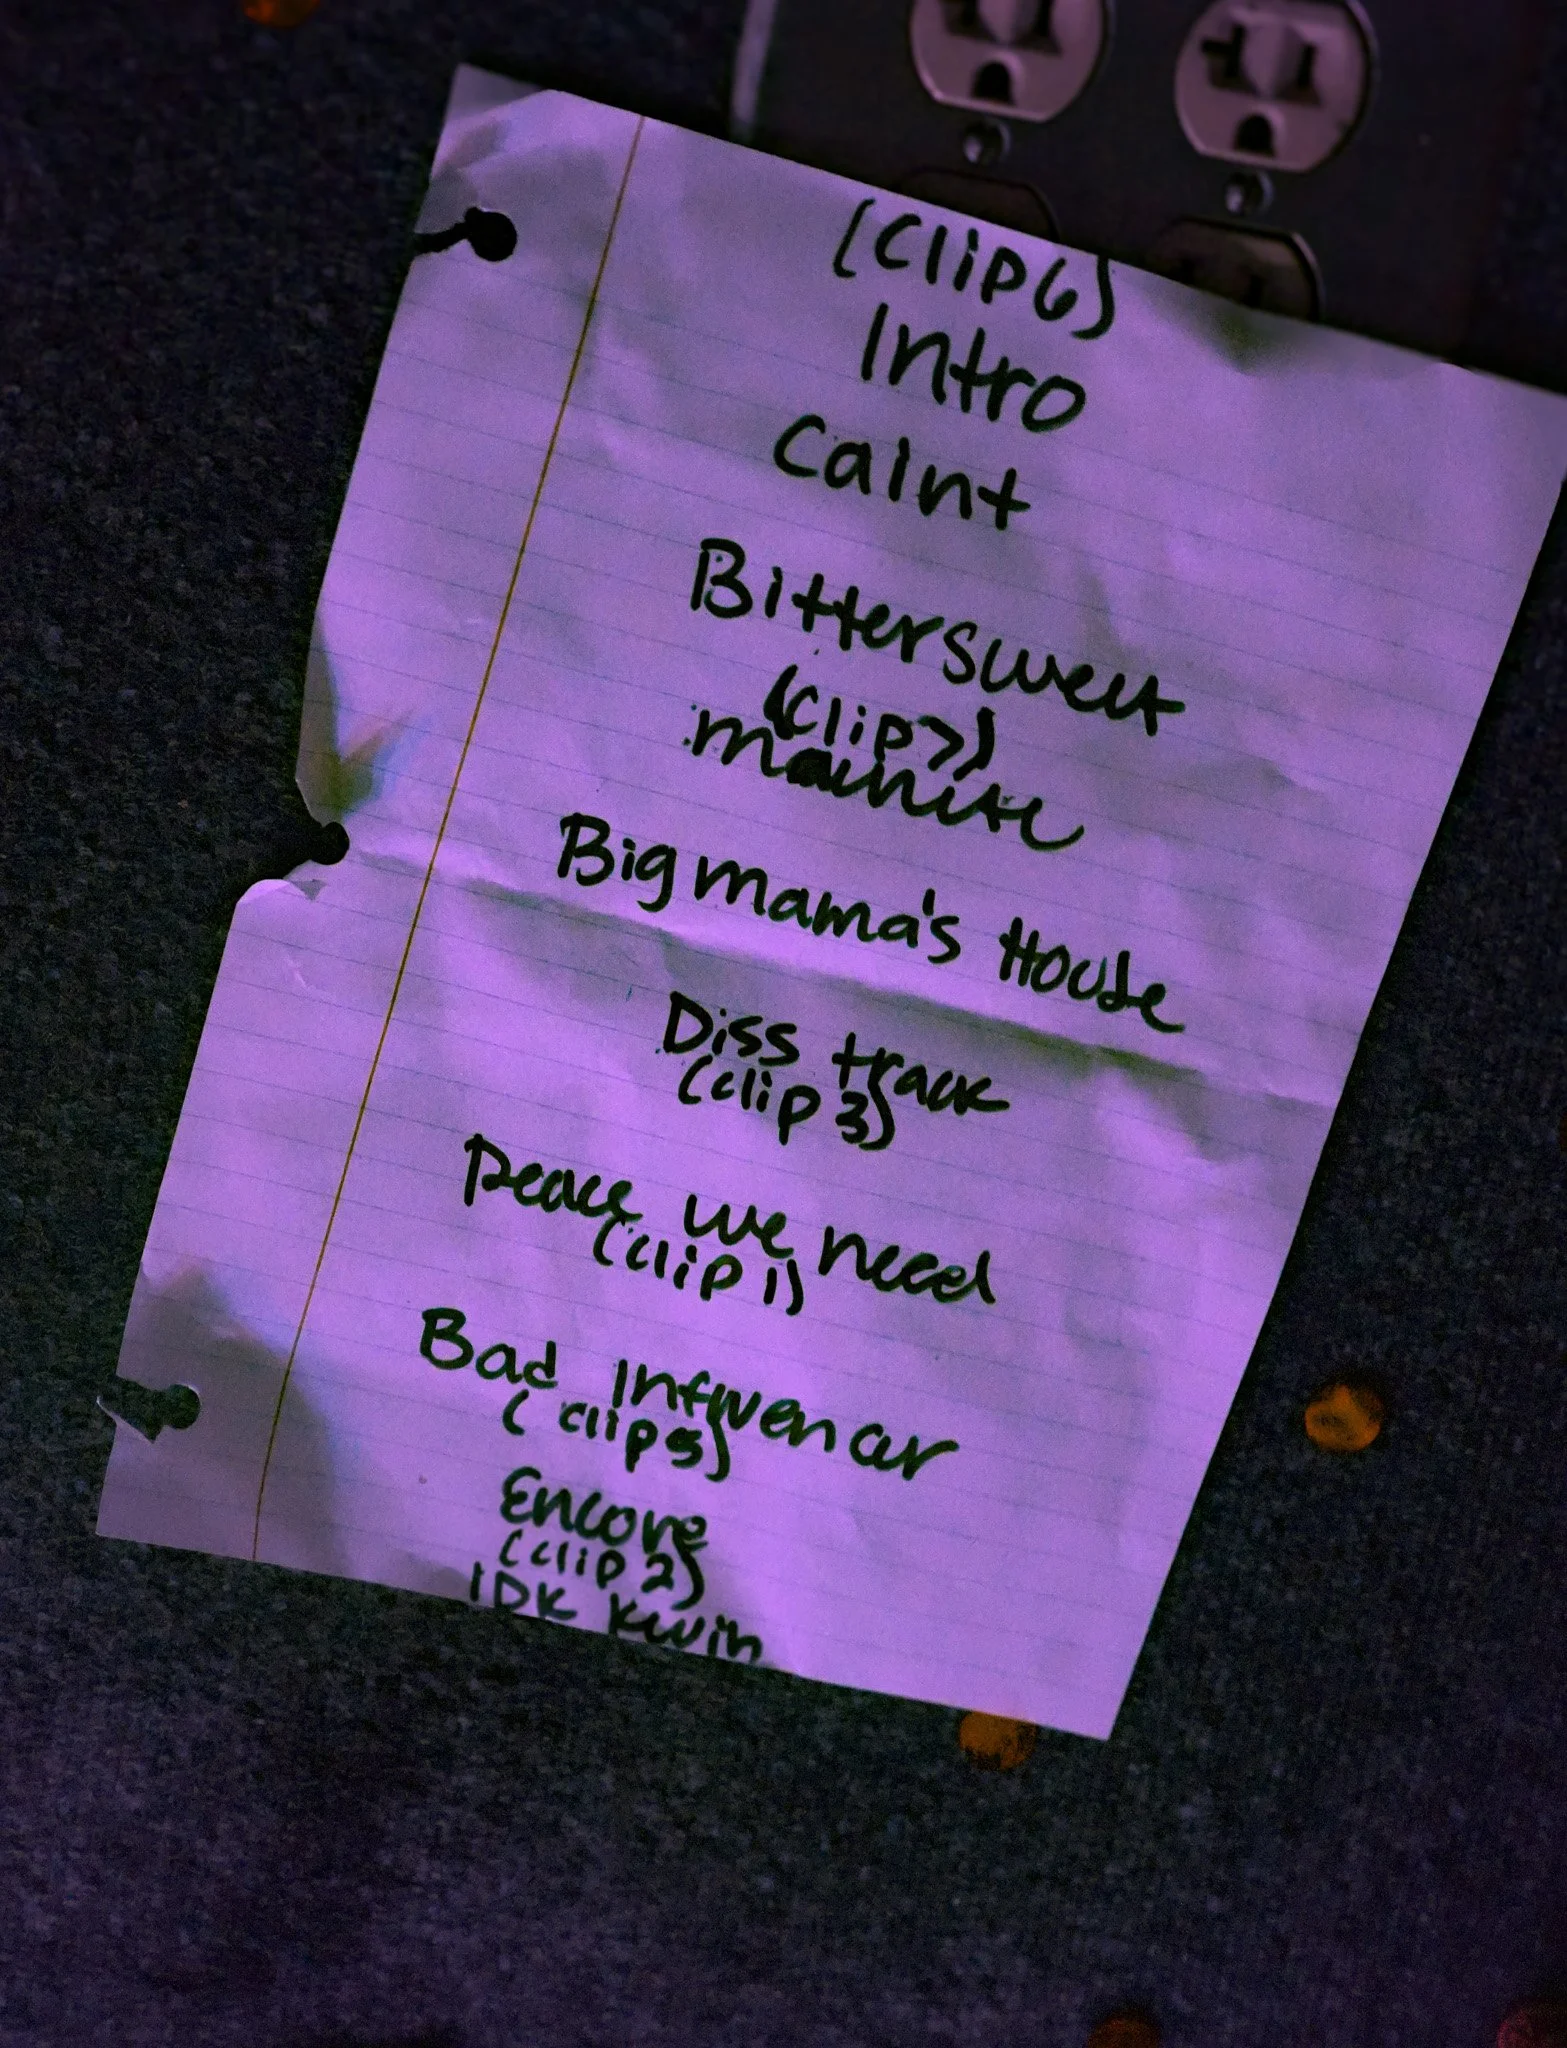 (Clip 6)
Intro
Caint
Bittersweet
(Clip 7)
Big mama's House
Diss track
(clip 3)
Peace we need
(clip 1)
Bad Influencer
(clip 5)
Encore
(clip 2)
IDK